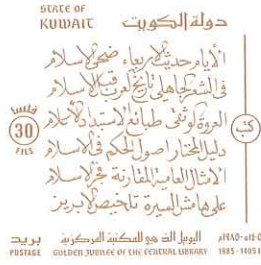 STATE OF
KUWAIT
دولة الكويت
الأيام حديث الأربعاء ضحى الاسلام
في الشعر الجاهلي تاريخ العرب قبل الاسلام
العروة الوثقى طبائع الاستبداد الأعلام
دليل المختار اصول الحكم في الاسلام
الامثال العامية المقارنة فجر الاسلام
على هامش السيرة تلخيص الابريز
فلسا
30
FILS
كتب
بريد
POSTAGE
اليوبيل الذهبي للمكتبة المركزية
GOLDEN JUBILEE OF THE CENTRAL LIBRARY